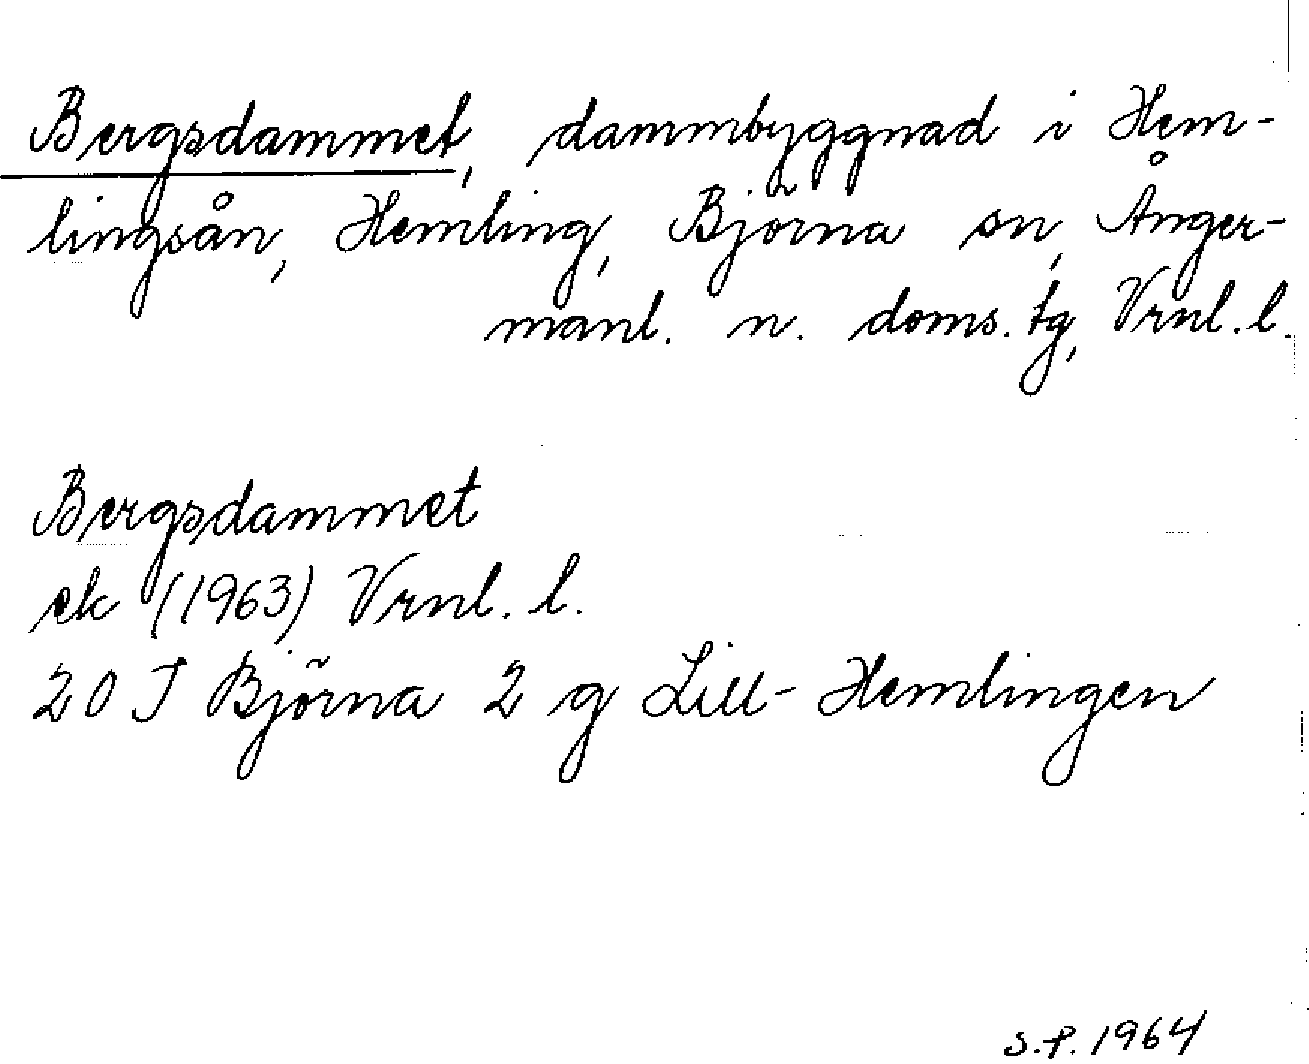 Bergsdammet, dammbyggnad i Hem-
lingsån, Hemling, Björna sn, Ånger-
manl. n. doms. tg, Vrnl. l.
Bergsdammet
ek (1963) Vrnl. l.
20 J Björna 2 g Lill-Hemlingen
S.P. 1964